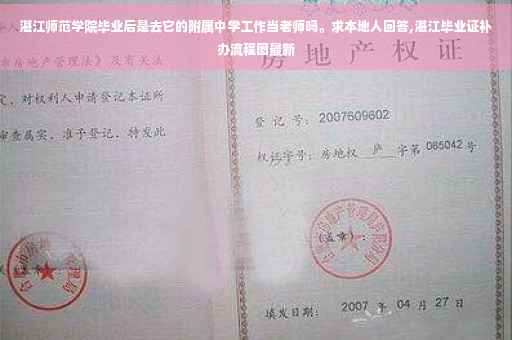 湛江师范学院毕业后是去它的附属中学工作当老师吗。求本地人回答,湛江毕业证补
办流程图最新
房地产权证
市房地产管理法》及其有
定，对权利人申请登记本证所
审查属实，准予登记，特发此
登 记 号：2007609602
权证字号：房地权 庐 字第 085042 号
(盖章)：
填发日期： 2007 年 04 月 27 日